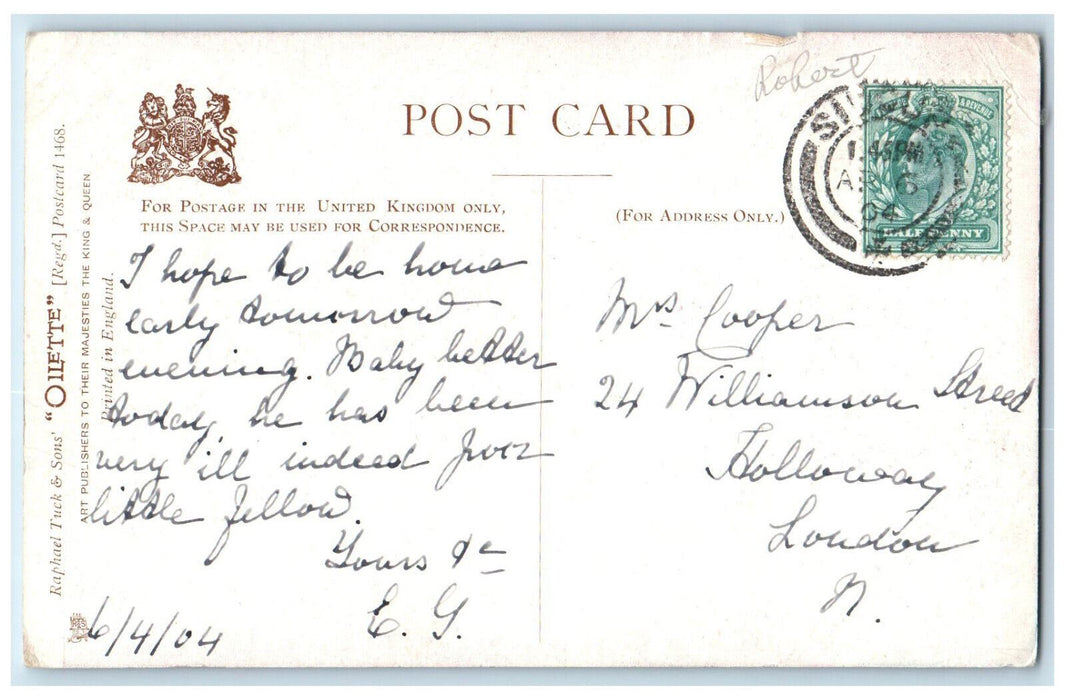 Robert
POST CARD
FOR POSTAGE IN THE UNITED KINGDOM ONLY,
THIS SPACE MAY BE USED FOR CORRESPONDENCE.
(FOR ADDRESS ONLY.)
Raphael Tuck & Sons' "OILETTE" [Regd.] Postcard 1468.
ART PUBLISHERS TO THEIR MAJESTIES THE KING & QUEEN
Printed in England.
I hope to be home
early tomorrow
evening. Baby better
today, he has been
very ill indeed poor
little fellow.
Yours &c
E. G.
6/4/04
Mrs Cooper
24 Williamson Street
Holloway
London
N.
& REVENUE
HALFPENNY
45PM
6
04